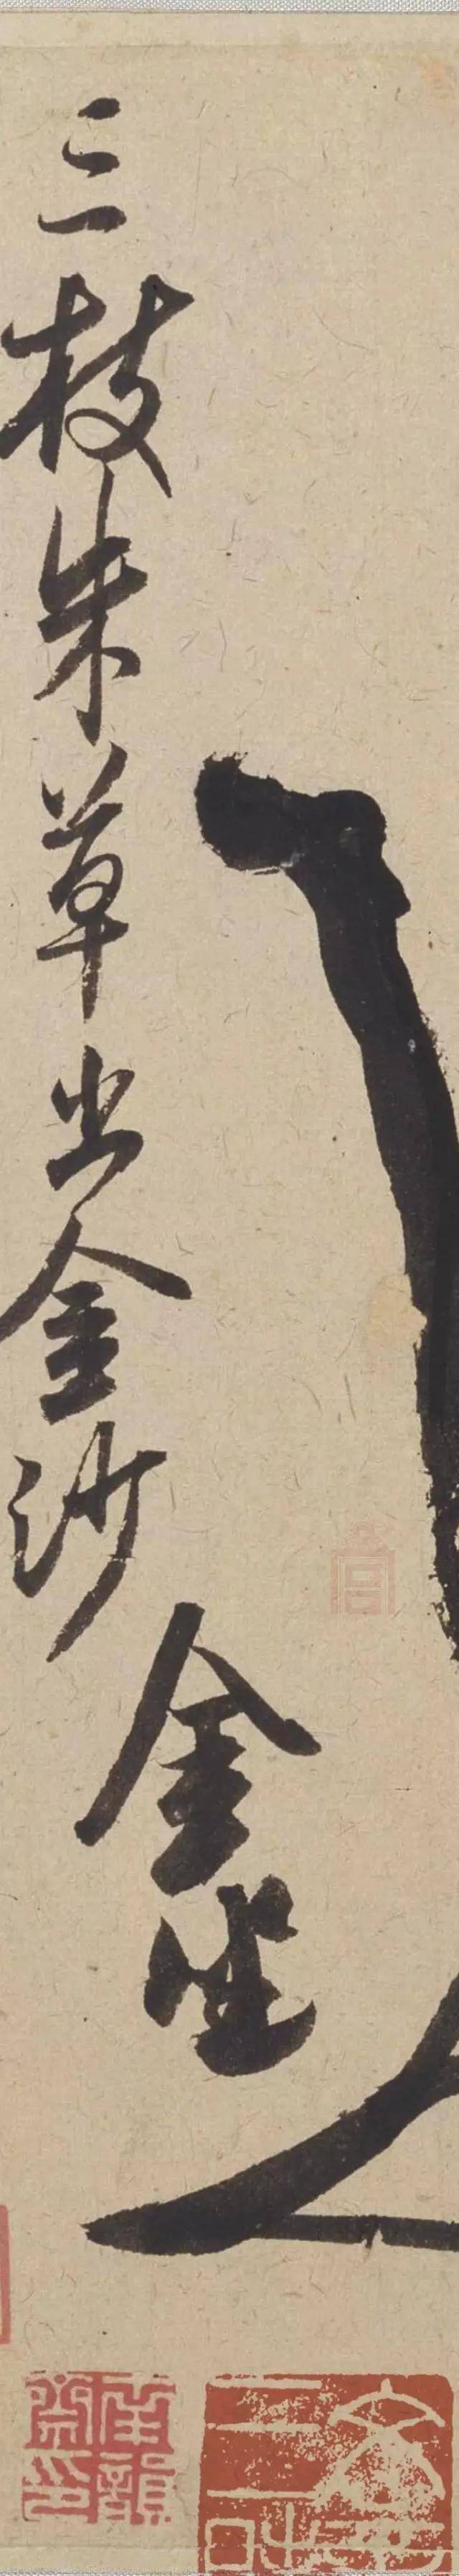 金坐
三枝朱草出金沙